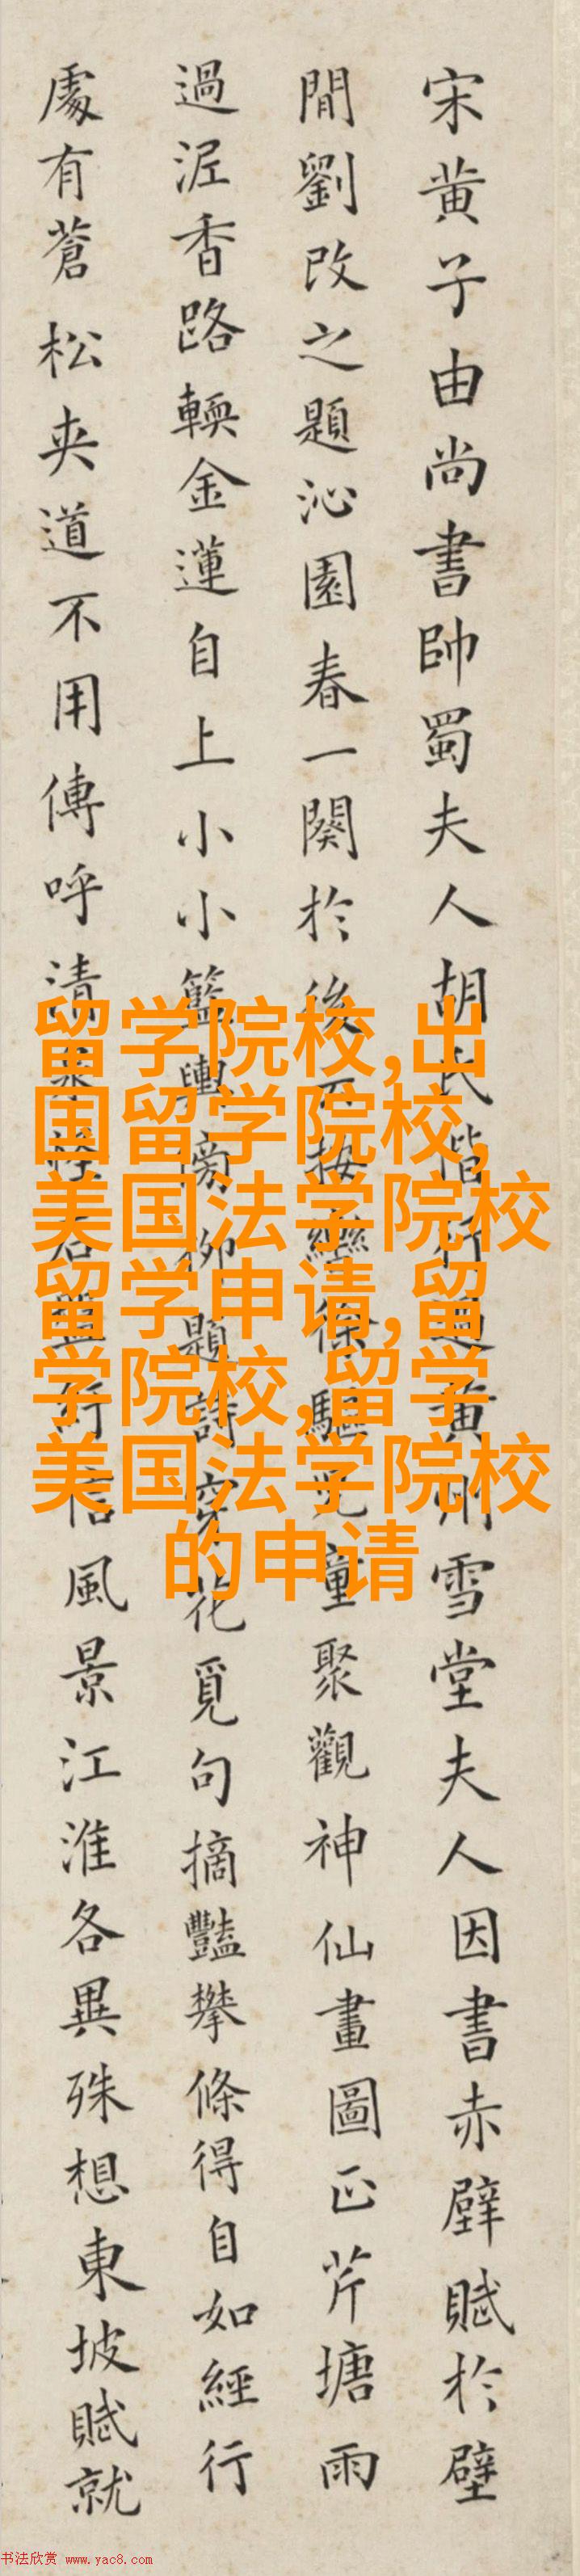 宋黄子由尚書帥蜀夫人胡氏偕行過黄州雪堂夫人因書赤壁賦於壁
間劉改之題沁園春一闋於後云按轡徐驅兒童聚觀神仙畫圖正芹塘雨
過泥香路輭金蓮自上小小籃輿傍柳題詩穿花覓句摘豔攀條得自如經行
處有蒼松夾道不用傳呼清泉怪石盤紆信風景江淮各異殊想東坡賦就
留学院校,出
国留学院校,
美国法学院校
留学申请,留
学院校,留学
美国法学院校
的申请
书法欣赏 www.yac8.com